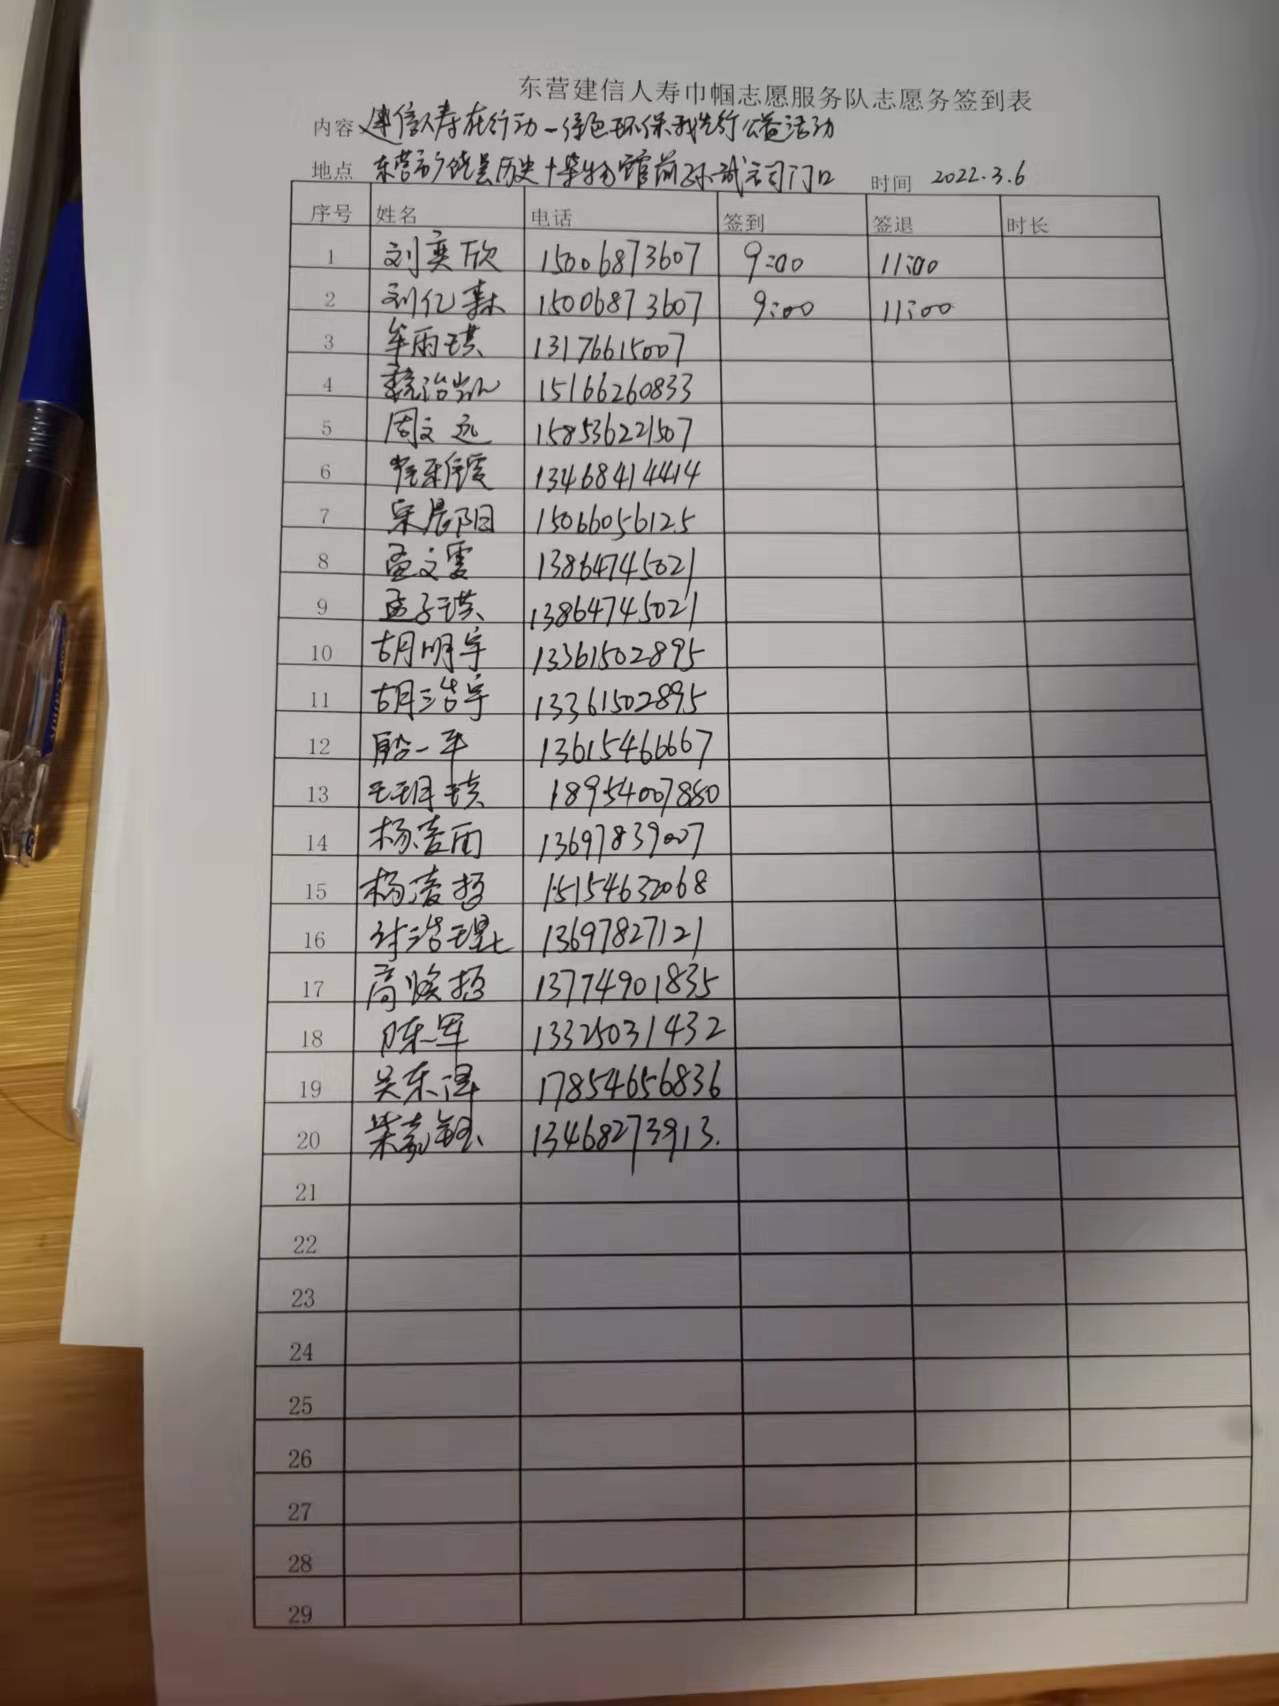 东营建信人寿巾帼志愿服务队志愿务签到表
内容 建信人寿在行动-绿色环保我先行公益活动
地点 东营市广饶县历史博物馆前孙武祠门口 时间 2022.3.6
序号 姓名 电话 签到 签退 时长
1 刘奕欣 15006873607 9:00 11:00
2 刘亿霖 15006873607 9:00 11:00
3 牟雨琪 13176615007
4 魏治凯 15166260833
5 周文远 158536221507
6 崔 13468414414
7 宋晨阳 15066056125
8 孟文雯 13864745021
9 孟子琪 13864745021
10 胡明宇 13361502895
11 胡浩宇 13361502895
12 一平 13615466667
13 王玥琪 18954007850
14 杨 雨 13697839007
15 杨凌哲 15154632068
16 浩琨 13697827121
17 高焕哲 13774901835
18 陈军 13325031432
19 吴东泽 17854656836
20 柴嘉钰 13468273913.
21
22
23
24
25
26
27
28
29